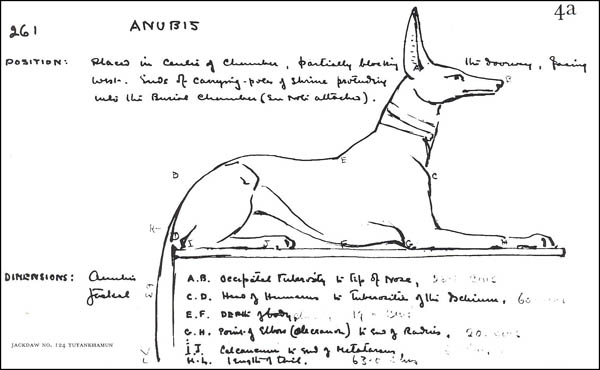 261
ANUBIS
4a
POSITION: Placed in centre of chamber, partially blocking the doorway, facing
West. Ends of carrying-poles of shrine protruding
into the Burial Chamber (See Note attached).
A
B
C
D
E
K
D
I
J
F
G
H
DIMENSIONS: Anubis
Jackal
A.B. Occipital Tuberosity to tip of Nose,
C.D. Head of Humerus to Tuberosities of the Ischium, 60
E.F. Depth of body,
G.H. Point of Elbow (olecranon) to end of Radius, 20.
I J. Calcaneum to end of Metatarsus
length of tail. 63.5
JACKDAW NO. 124 TUTANKHAMUN
L